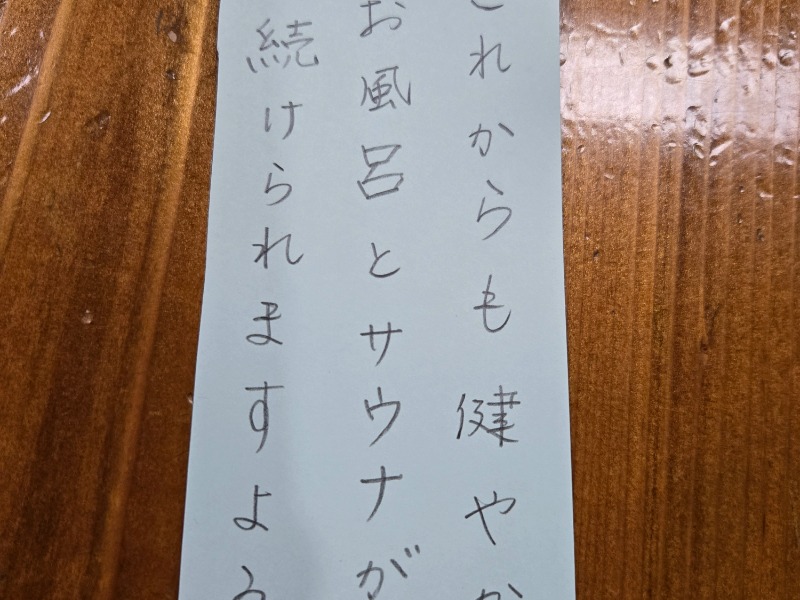 これからも健やか
お風呂とサウナが
続けられますよう